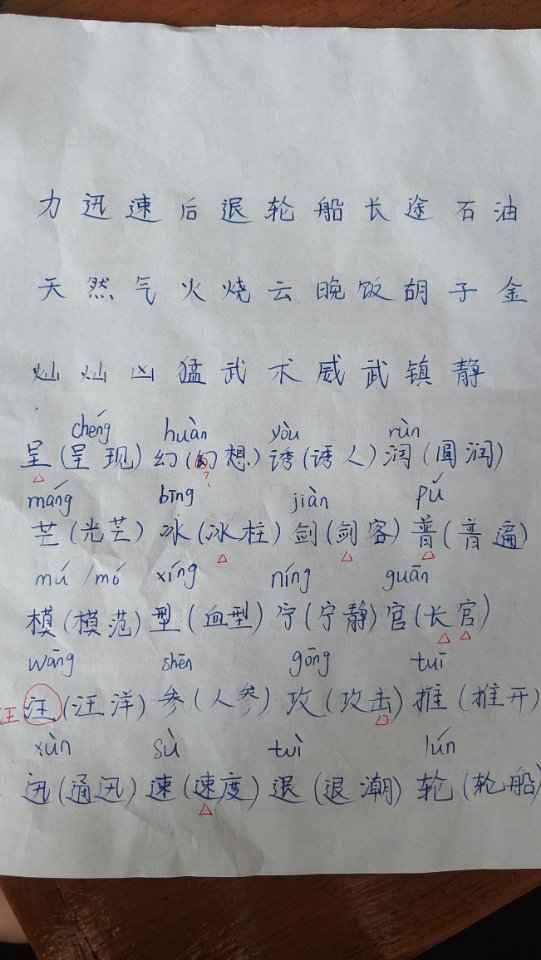 力迅速后退轮船长途石油
天然气火烧云晚饭胡子金
灿灿凶猛武术威武镇静
chéng huàn yòu rùn
呈(呈现)幻(幻想)诱(诱人)润(圆润)
?
máng bīng jiàn pǔ
芒(光芒)冰(冰柱)剑(剑客)普(普遍)
mú/mó xíng níng guān
模(模范)型(血型)宁(宁静)官(长官)
wāng shēn gōng tuī
汪 汪(汪洋)参(人参)攻(攻击)推(推开)
xùn sù tuì lún
迅(通迅)速(速度)退(退潮)轮(轮船)